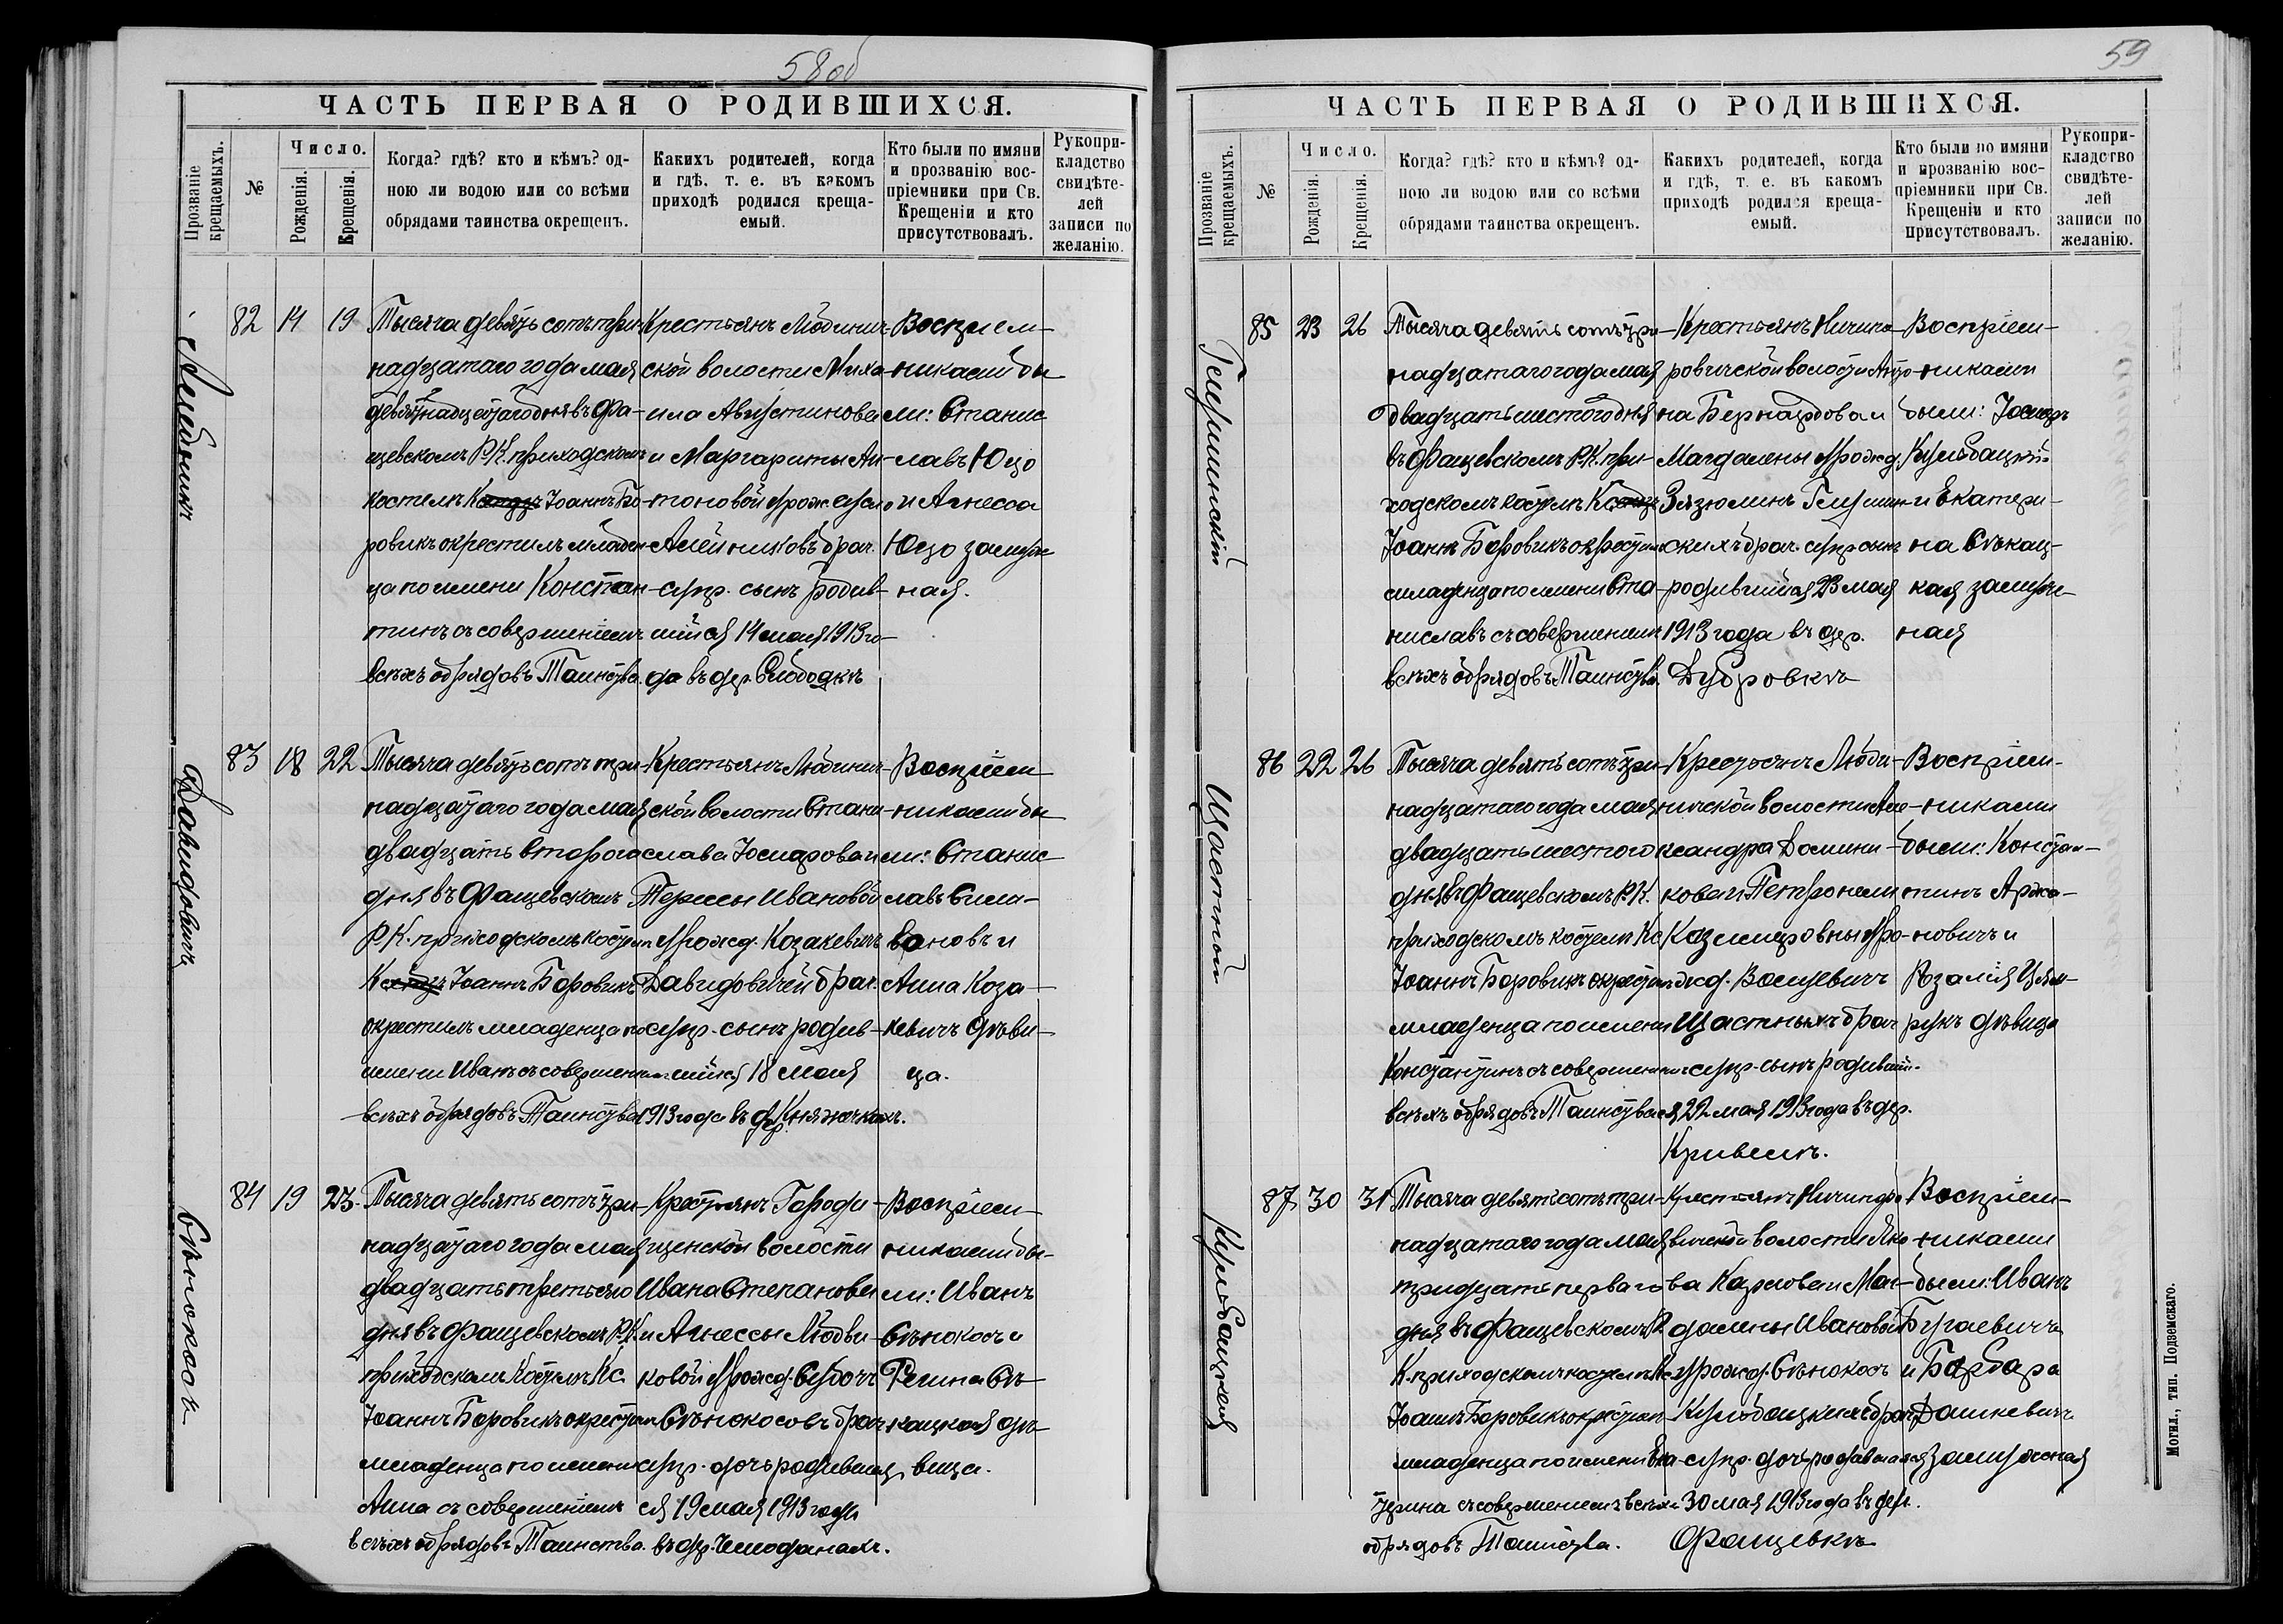 58 об
ЧАСТЬ ПЕРВАЯ О РОДИВШИХСЯ.
Прозваніе крещаемыхъ.
№
Число.
Рожденія.
Крещенія.
Когда? гдѣ? кто и кѣмъ? од-
ною ли водою или со всѣми
обрядами таинства окрещенъ.
Какихъ родителей, когда
и гдѣ, т. е. въ какомъ
приходѣ родился креща-
емый.
Кто были по имяни
и прозванію вос-
пріемники при Св.
Крещеніи и кто
присутствовалъ.
Рукопри-
кладство
свидѣте-
лей
записи по
желанію.
82 14 19
Тысяча девять сотъ три-
надцатаго года мая
девятнадцатаго дня въ Фа-
щевскомъ Р.К. приходскомъ
костелѣ Іоаннъ Бо-
ровикъ окрестилъ младен-
ца по имени Констан-
тинъ съ совершеніемъ
всѣхъ обрядовъ Таинства.
Крестьянъ Любинич-
ской волости Миха-
ила Августинова
и Маргариты Ан-
тоновой урож.
Алейниковъ брач.
супр. сынъ родив-
шійся 14 мая 1913 го-
да въ дер. Слободкѣ
Воспріем-
никами бы-
ли: Станис-
лавъ Юцо
и Агнесса
Юцо замуж-
ная.
Давидовичъ
83 18 22
Тысяча девять сотъ три-
надцатаго года мая
двадцать второго
дня въ Фащевскомъ
Р.К. приходскомъ костелѣ
Іоаннъ Боровикъ
окрестилъ младенца по
имени Иванъ съ совершеніемъ
всѣхъ обрядовъ Таинства
Крестьянъ Любинич-
ской волости Стани-
слава Іосифова и
Терезы Ивановой
урожд. Козакевичъ
Давидовичей брач.
супр. сынъ родив-
шійся 18 мая
1913 года въ дер. Княжичкахъ.
Воспріем-
никами бы-
ли: Станис-
лавъ Сили-
вановъ и
Анна Коза-
кевичъ дѣви-
ца.
Сѣнокосъ
84 19 23
Тысяча девять сотъ три-
надцатаго года мая
двадцать третьяго
дня въ Фащевскомъ Р.К.
приходскомъ костелѣ Кс.
Іоаннъ Боровикъ окрестилъ
младенца по имени
Анна съ совершеніемъ
всѣхъ обрядовъ Таинства.
Крестьянъ Городи-
щенской волости
Ивана Степанова
и Агнессы Людви-
ковой урожд.
Сѣнокосовъ брач
супр. дочь родившая
ся 19 мая 1913 года
въ дер. Чемоданахъ.
Воспріем-
никами бы-
ли: Иванъ
Сѣнокосъ и
Регина Сѣ-
кацкая дѣ-
вица.
59
ЧАСТЬ ПЕРВАЯ О РОДИВШИХСЯ.
Прозваніе крещаемыхъ.
№
Число.
Рожденія.
Крещенія.
Когда? гдѣ? кто и кѣмъ? од-
ною ли водою или со всѣми
обрядами таинства окрещенъ.
Какихъ родителей, когда
и гдѣ, т. е. въ каком
приходѣ родился креща-
емый.
Кто были по имяни
и прозванію вос-
пріемники при Св.
Крещеніи и кто
присутствовалъ.
Рукопри-
кладство
свидѣте-
лей
записи по
желанію.
85 23 26
Тысяча девять сотъ три-
надцатаго года мая
двадцать шестого дня
въ Фащевскомъ Р.К. при-
ходскомъ костелѣ
Іоаннъ Боровикъ окрестилъ
младенца по имени Ста-
ниславъ съ совершеніемъ
всѣхъ обрядовъ Таинства.
Крестьянъ
волости Анто-
на Бернардова и
Магдалены урожд.
Зязюлинъ
скихъ брач. супр. сынъ
родившійся 23 мая
1913 года въ дер.
Дубровкѣ
Воспріем-
никами
были: Іосифъ
Курлбацкій
и Екатери-
на Сѣкац-
кая замуж-
ная
Щастный
86 22 26
Тысяча девять сотъ три-
надцатаго года мая
двадцать шестого
дня въ Фащевскомъ Р.К.
приходскомъ костелѣ Кс
Іоаннъ Боровикъ окрестилъ
младенца по имени
Константинъ съ совершеніемъ
всѣхъ обрядовъ Таинства
Крестьянъ Люби-
ничской волости Але-
ксандра Домини-
кова и Петронели
Казимировны уро-
жд. Войцевичъ
Щастныхъ брач
супр. сынъ родивший-
ся 22 мая 1913 года въ дер.
Кривелѣ.
Воспріем-
никами
были: Констан-
тинъ Аржа-
новичъ и
Розалія
дѣвица
87 30 31
Тысяча девять сотъ три-
надцатаго года мая
тридцать перваго
дня въ Фащевскомъ Р.
К. приходскомъ костелѣ Кс
Іоаннъ Боровикъ окрестилъ
младенца по имени Ека-
терина съ совершеніемъ всѣхъ
обрядовъ Таинства.
Крестьянъ
волости Яко-
ва Карлова и Маг-
далены Ивановой
урожд. Сѣнокосъ
Курлбацкихъ брач
супр. дочь родившаяся
30 мая 1913 года въ дер.
Фащевкѣ
Воспріем-
никами
были: Иванъ
Бугаевичъ
и Барбара
Дашкевичъ
замужная
Могил., тип. Подземскаго.